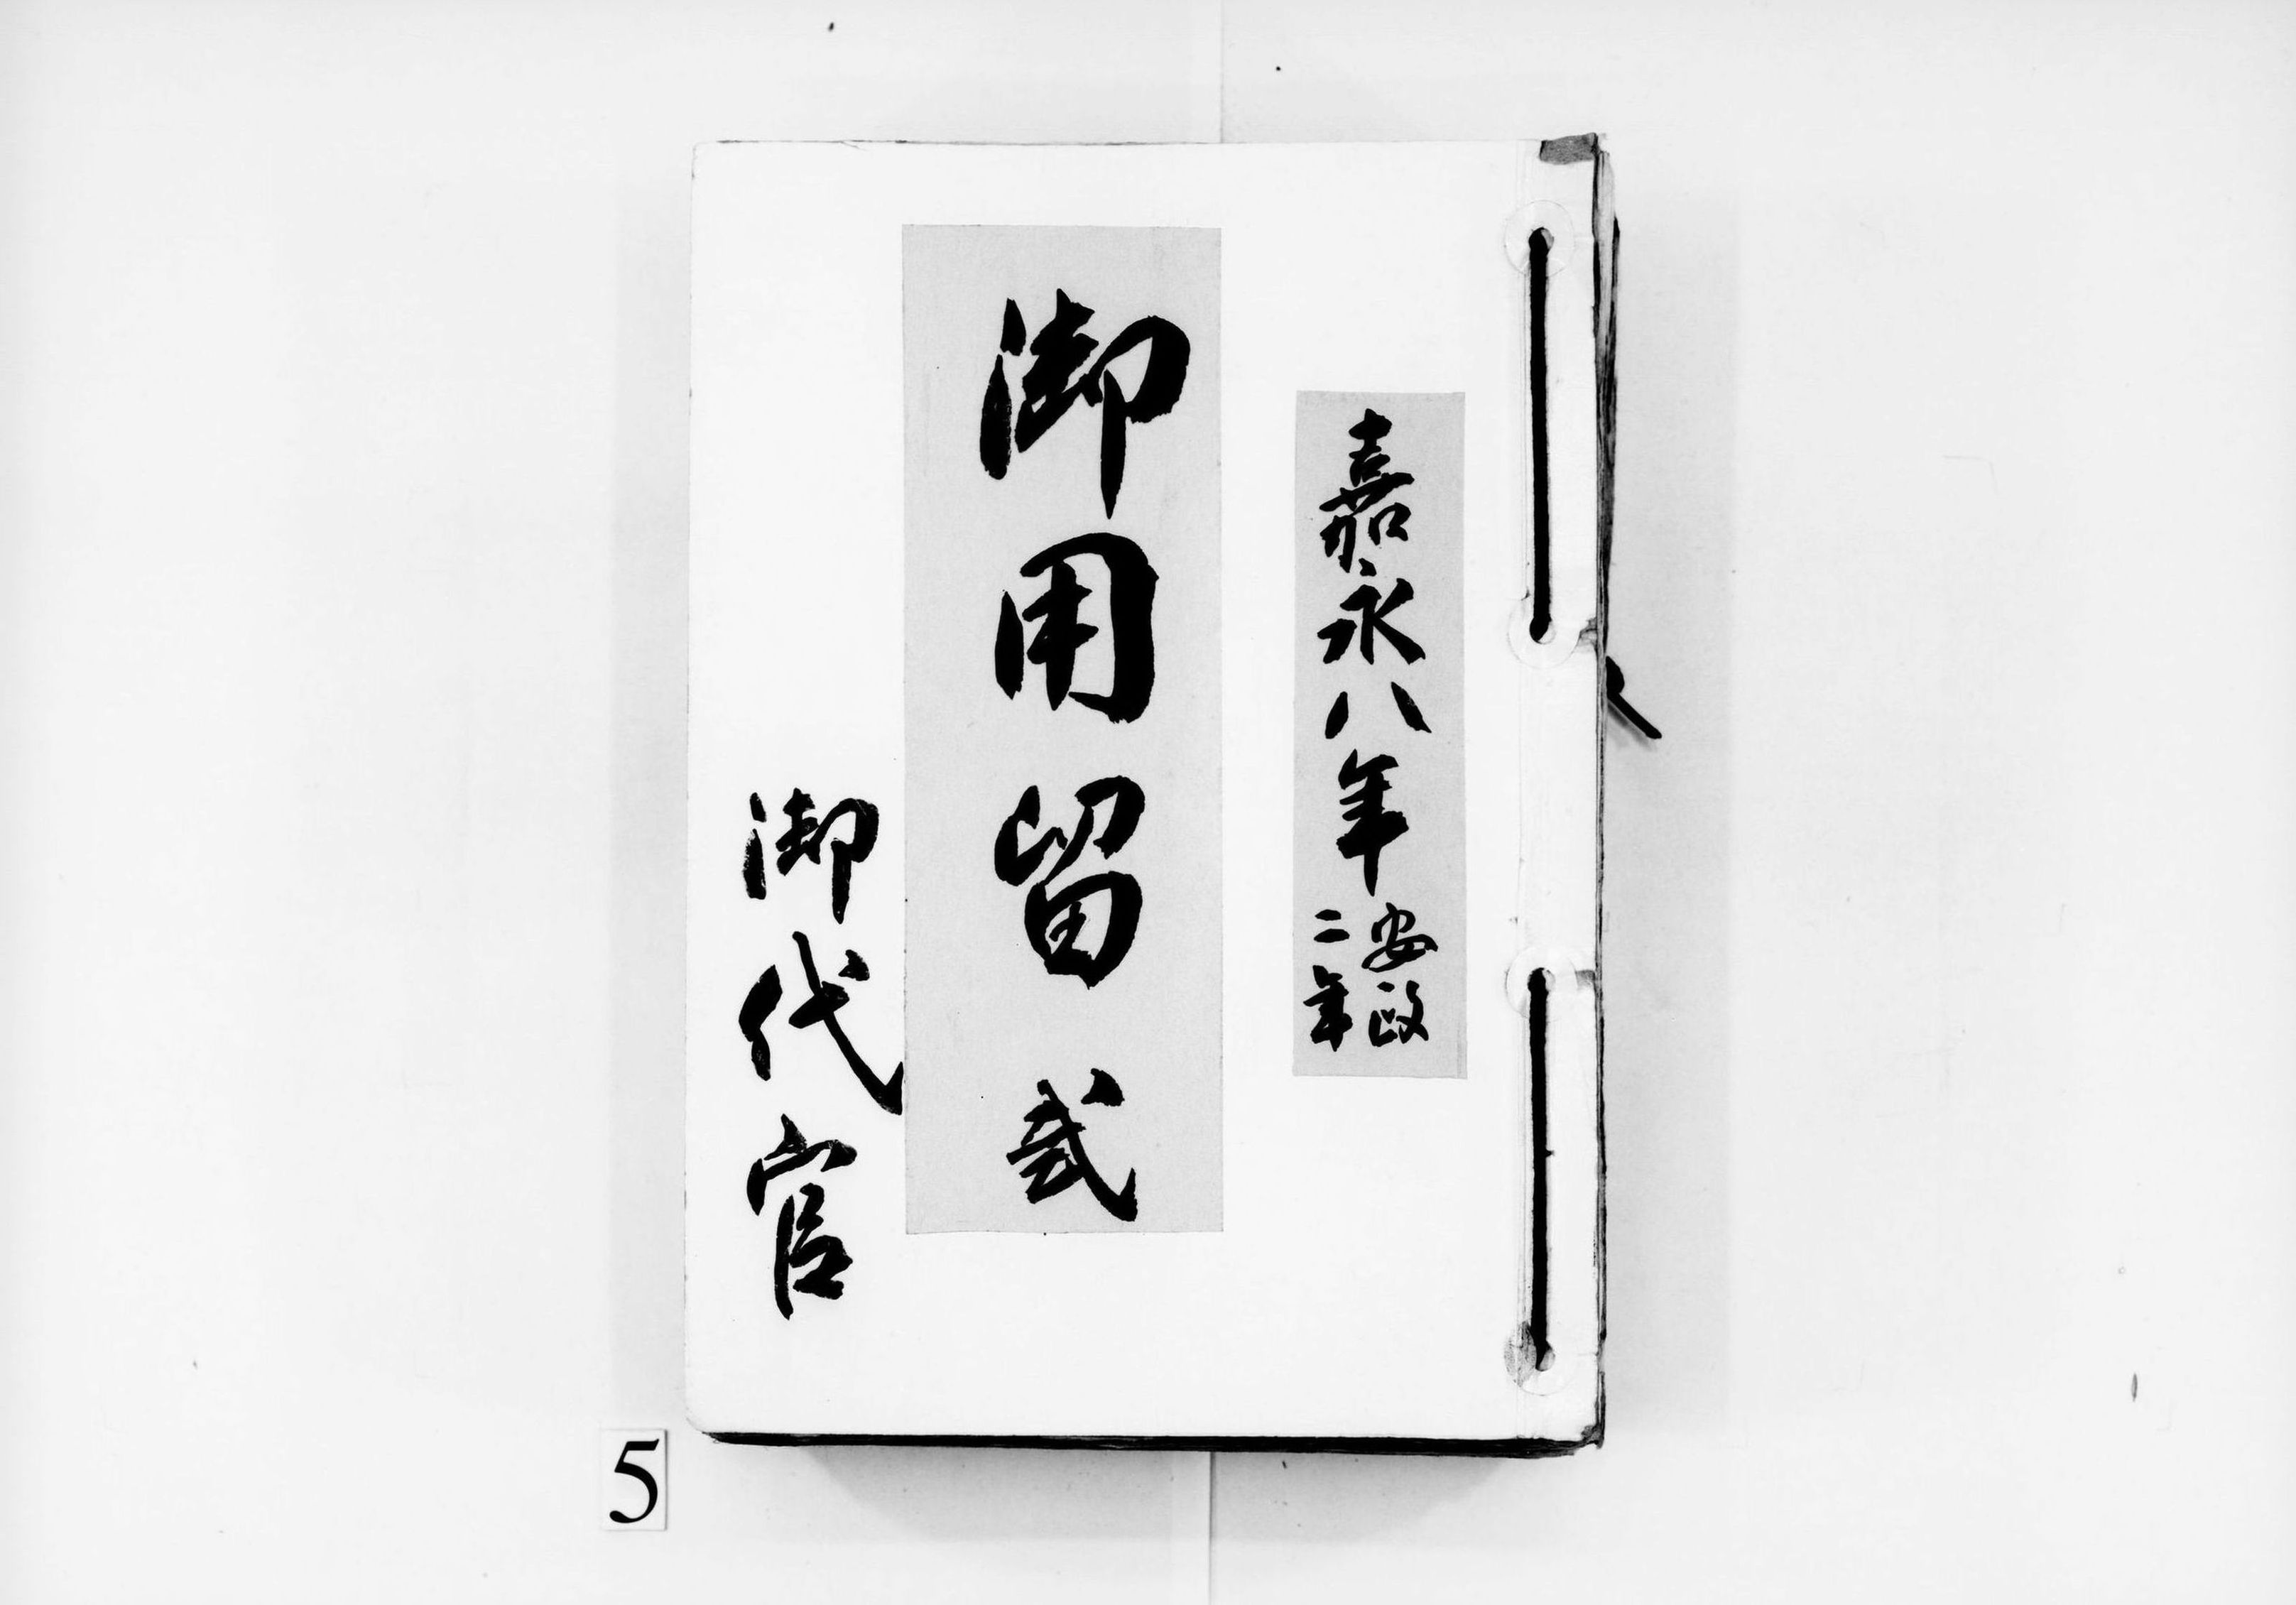 嘉永八年
安政
二年
御用留 弐
御代官
5